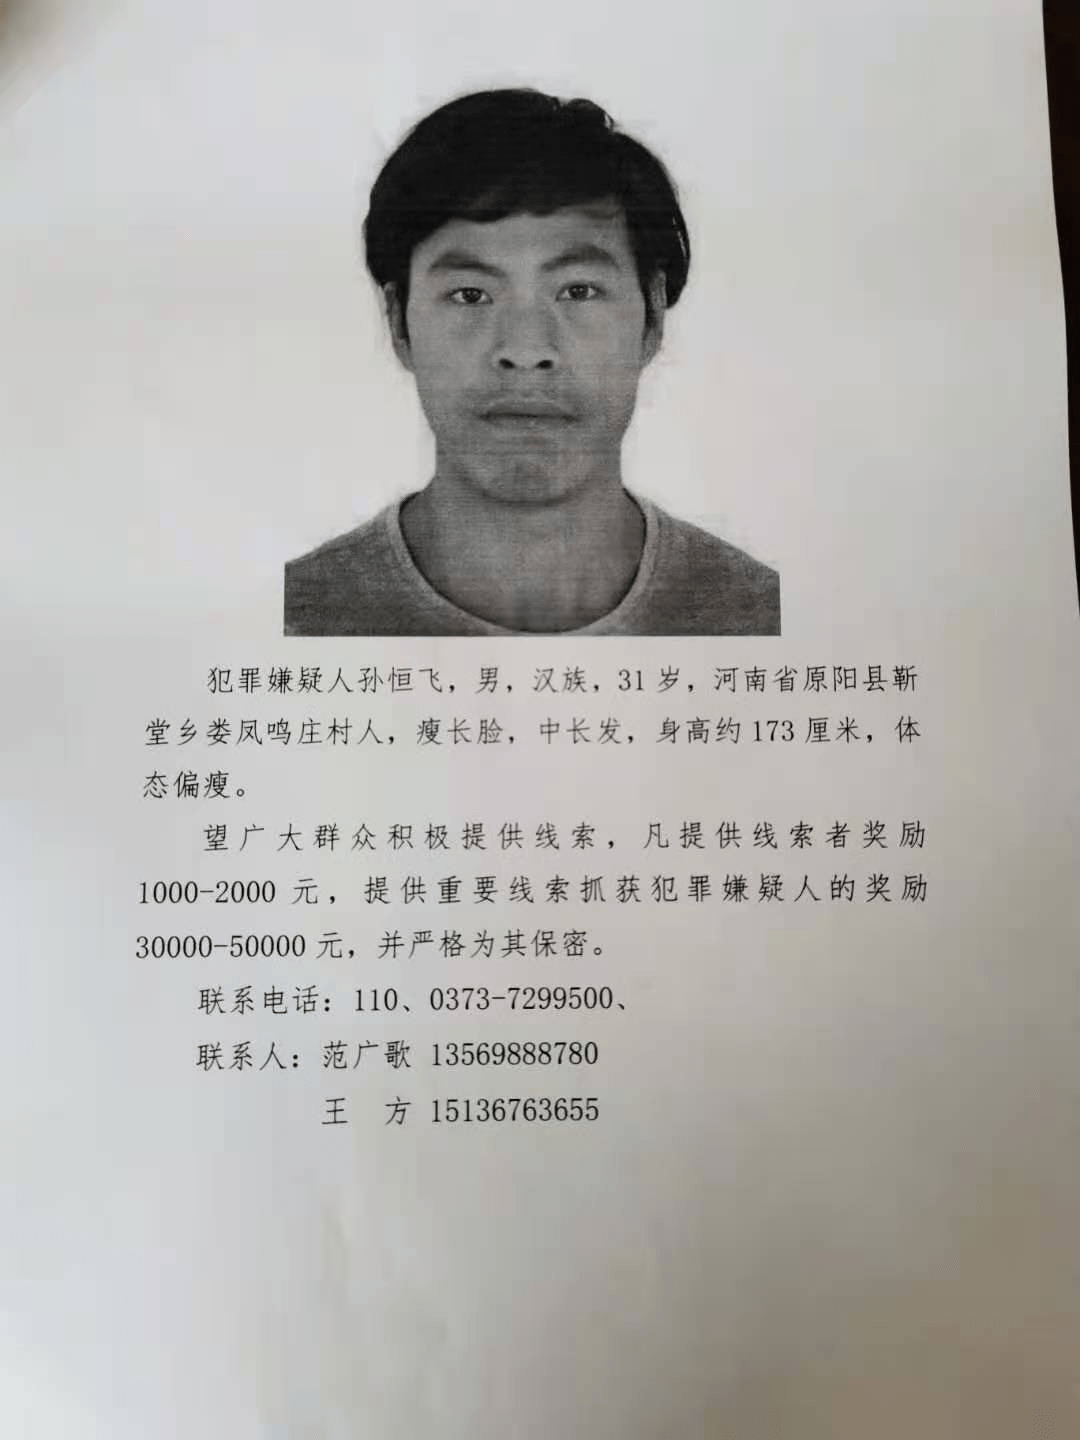 犯罪嫌疑人孙恒飞，男，汉族，31岁，河南省原阳县靳
堂乡娄凤鸣庄村人，瘦长脸，中长发，身高约173厘米，体
态偏瘦。
望广大群众积极提供线索，凡提供线索者奖励
1000-2000元，提供重要线索抓获犯罪嫌疑人的奖励
30000-50000元，并严格为其保密。
联系电话：110、0373-7299500、
联系人：范广歌 13569888780
王　方 15136763655